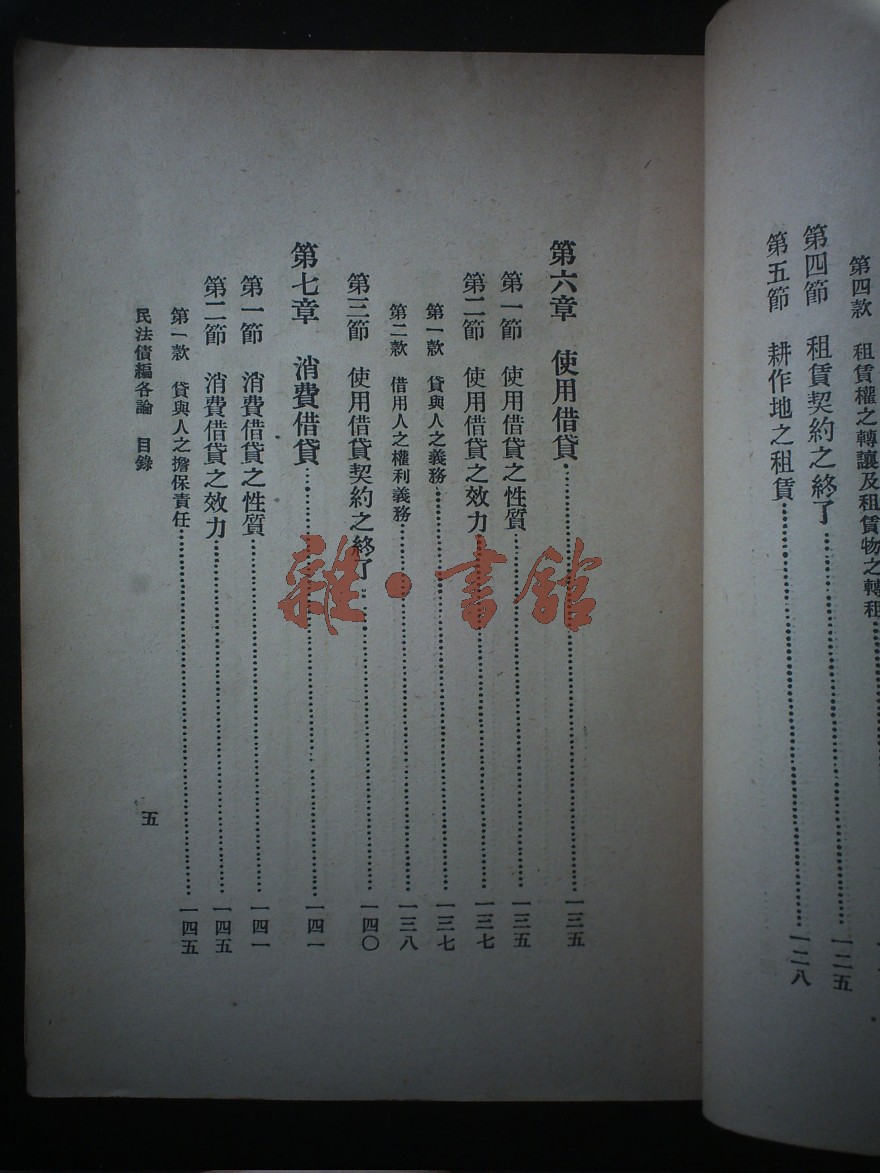 第四款　租賃權之轉讓及租賃物之轉租
第四節　租賃契約之終了……一二五
第五節　耕作地之租賃……一二八
第六章　使用借貸……一三五
第一節　使用借貸之性質……一三五
第二節　使用借貸之效力……一三七
第一款　貸與人之義務……一三七
第二款　借用人之權利義務……一三八
第三節　使用借貸契約之終了……一四〇
第七章　消費借貸……一四一
第一節　消費借貸之性質……一四一
第二節　消費借貸之效力……一四五
第一款　貸與人之擔保責任……一四五
民法債編各論　目錄
五
雜·書館